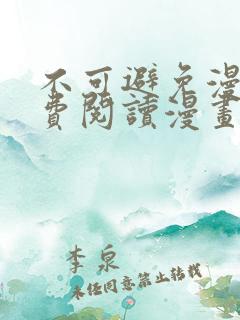 不可避免漫
费阅读漫畫
李泉
未经同意禁止转载